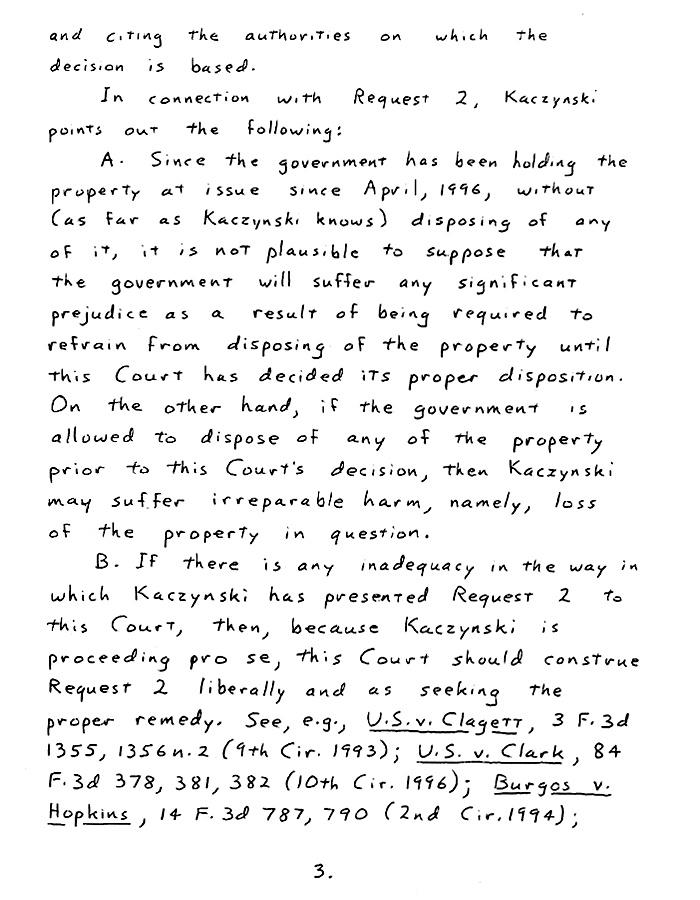 and citing the authorities on which the
decision is based.
In connection with Request 2, Kaczynski
points out the following:
A. Since the government has been holding the
property at issue since April, 1996, without
(as far as Kaczynski knows) disposing of any
of it, it is not plausible to suppose that
the government will suffer any significant
prejudice as a result of being required to
refrain from disposing of the property until
this Court has decided its proper disposition.
On the other hand, if the government is
allowed to dispose of any of the property
prior to this Court's decision, then Kaczynski
may suffer irreparable harm, namely, loss
of the property in question.
B. If there is any inadequacy in the way in
which Kaczynski has presented Request 2 to
this Court, then, because Kaczynski is
proceeding pro se, this Court should construe
Request 2 liberally and as seeking the
proper remedy. See, e.g., U.S. v. Clagett, 3 F. 3d
1355, 1356 n. 2 (9th Cir. 1993); U.S. v. Clark, 84
F. 3d 378, 381, 382 (10th Cir. 1996); Burgos v.
Hopkins, 14 F. 3d 787, 790 (2nd Cir. 1994);
3.